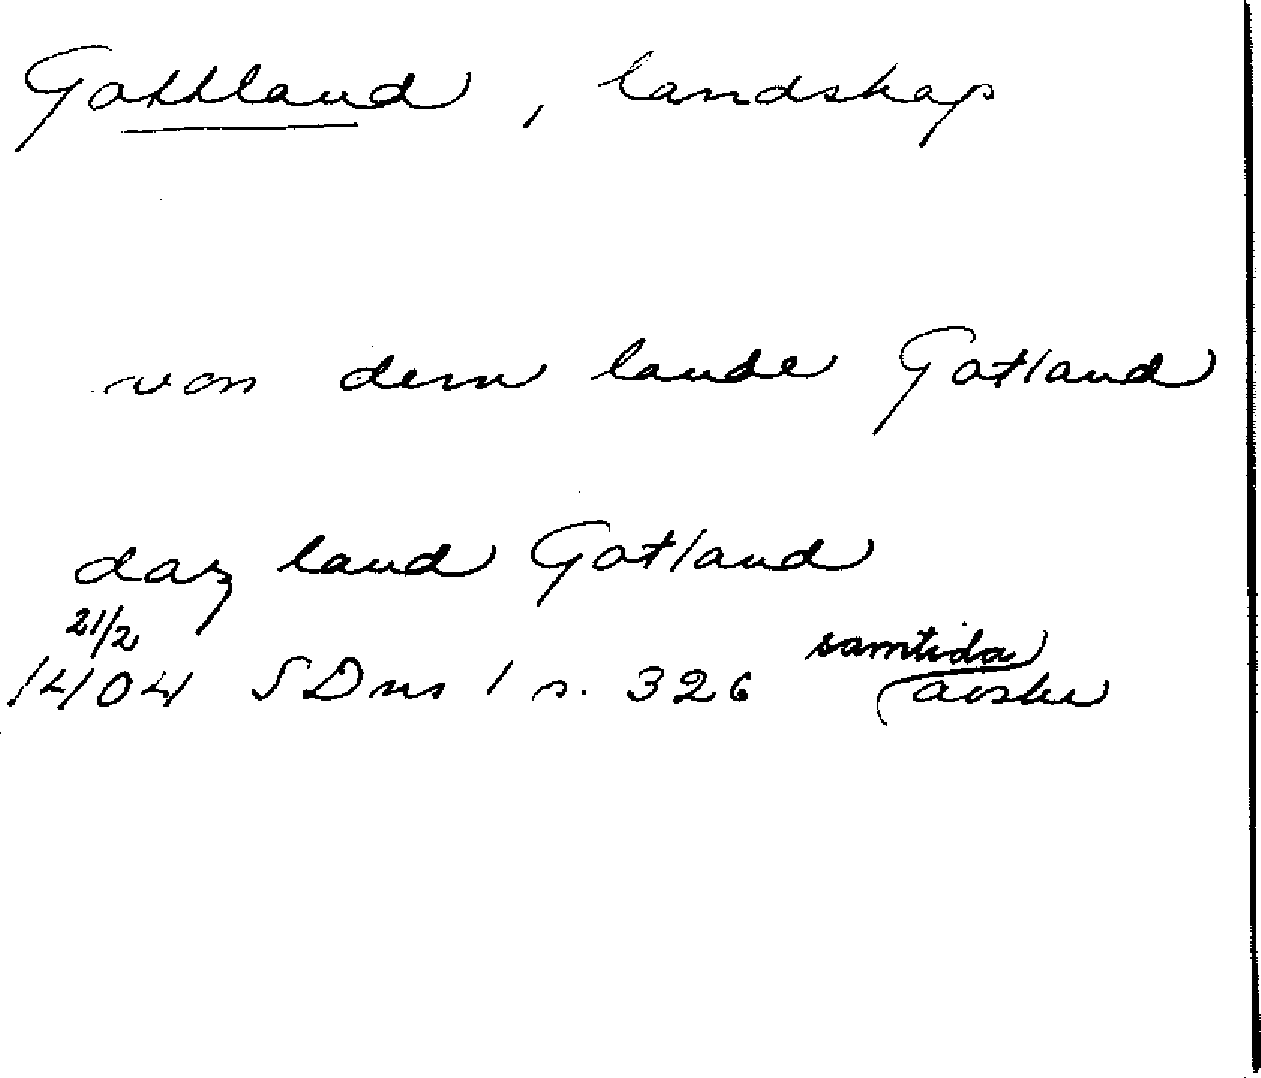 Gottland, landskap
von dem lande Gotland
daz land Gotland
21/2 samtida
1404 SDns 1 s. 326 avskr